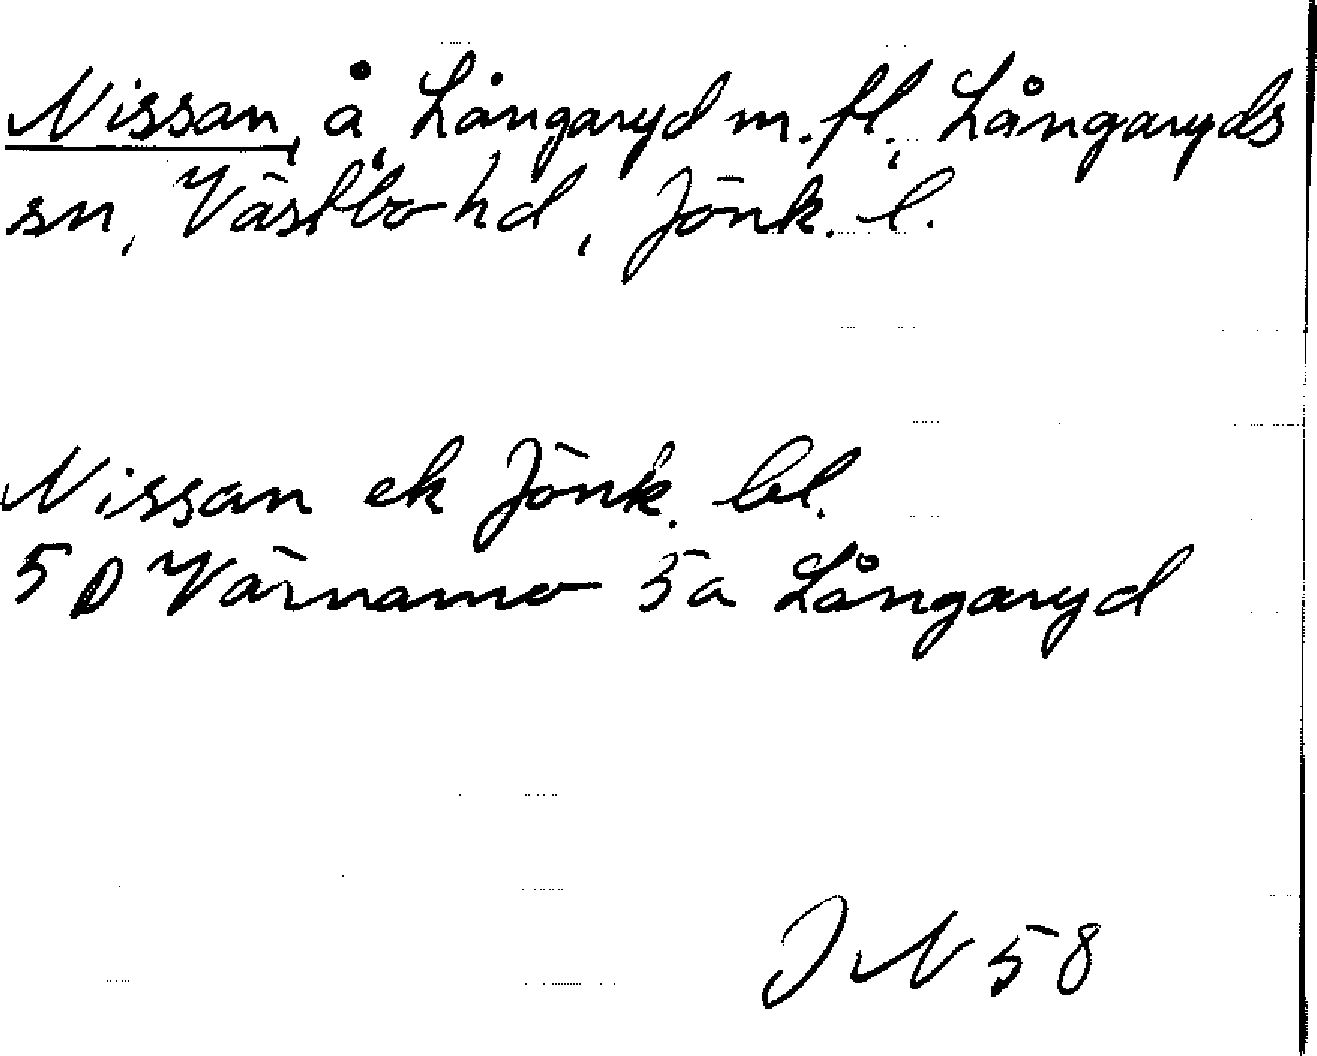 Nissan, å, Långaryd m. fl., Långaryds
sn, Västbo hd, Jönk. l.
Nissan ek Jönk. bl.
5 D Värnamo 5a Långaryd
JN 58